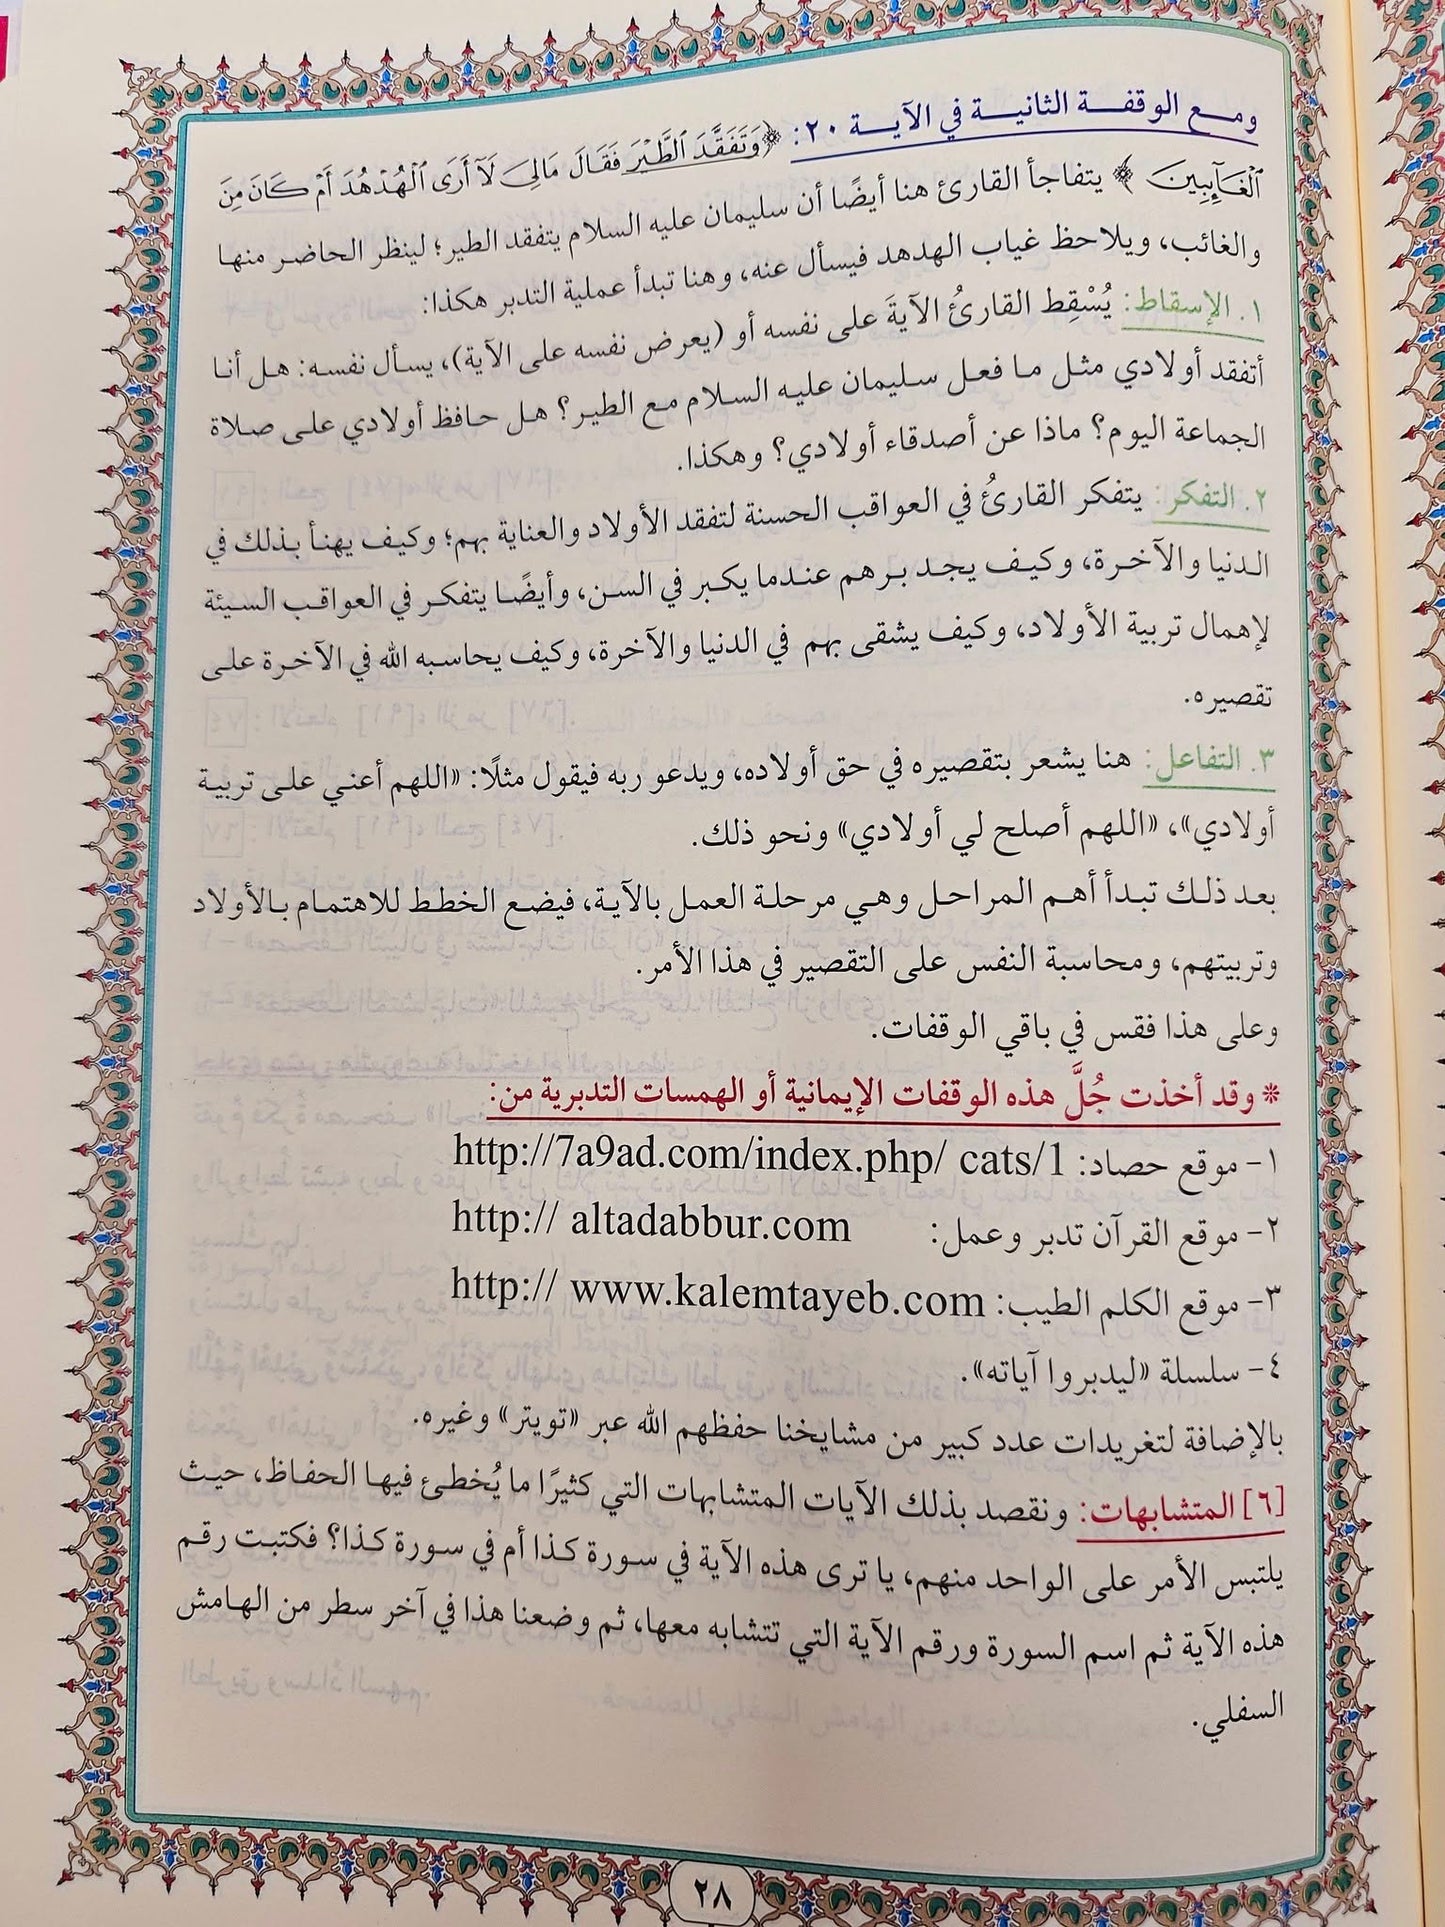 ومع الوقفة الثانية في الآية ٢٠: ﴿وَتَفَقَّدَ ٱلطَّيْرَ فَقَالَ مَالِىَ لَآ أَرَى ٱلْهُدْهُدَ أَمْ كَانَ مِنَ
ٱلْغَآئِبِينَ﴾ يتفاجأ القارئ هنا أيضًا أن سليمان عليه السلام يتفقد الطير؛ لينظر الحاضر منها
والغائب، ويلاحظ غياب الهدهد فيسأل عنه، وهنا تبدأ عملية التدبر هكذا:
١. الإسقاط: يُسْقِط القارئُ الآيةَ على نفسه أو (يعرض نفسه على الآية)، يسأل نفسه: هل أنا
أتفقد أولادي مثل ما فعل سليمان عليه السلام مع الطير؟ هل حافظ أولادي على صلاة
الجماعة اليوم؟ ماذا عن أصدقاء أولادي؟ وهكذا.
٢. التفكر: يتفكر القارئُ في العواقب الحسنة لتفقد الأولاد والعناية بهم؛ وكيف يهنأ بذلك في
الدنيا والآخرة، وكيف يجد برهم عندما يكبر في السن، وأيضًا يتفكر في العواقب السيئة
لإهمال تربية الأولاد، وكيف يشقى بهم في الدنيا والآخرة، وكيف يحاسبه الله في الآخرة على
تقصيره.
٣. التفاعل: هنا يشعر بتقصيره في حق أولاده، ويدعو ربه فيقول مثلًا: «اللهم أعني على تربية
أولادي»، «اللهم أصلح لي أولادي» ونحو ذلك.
بعد ذلك تبدأ أهم المراحل وهي مرحلة العمل بالآية، فيضع الخطط للاهتمام بالأولاد
وتربيتهم، ومحاسبة النفس على التقصير في هذا الأمر.
وعلى هذا فقس في باقي الوقفات.
* وقد أخذت جُلَّ هذه الوقفات الإيمانية أو الهمسات التدبرية من:
١- موقع حصاد: http://7a9ad.com/index.php/ cats/1
٢- موقع القرآن تدبر وعمل: http:// altadabbur.com
٣- موقع الكلم الطيب: http:// www.kalemtayeb.com
٤- سلسلة «ليدبروا آياته».
بالإضافة لتغريدات عدد كبير من مشايخنا حفظهم الله عبر «تويتر» وغيره.
[٦] المتشابهات: ونقصد بذلك الآيات المتشابهات التي كثيرًا ما يُخطئ فيها الحفاظ، حيث
يلتبس الأمر على الواحد منهم، يا ترى هذه الآية في سورة كذا أم في سورة كذا؟ فكتبت رقم
هذه الآية ثم اسم السورة ورقم الآية التي تتشابه معها، ثم وضعنا هذا في آخر سطر من الهامش
السفلي.
٢٨